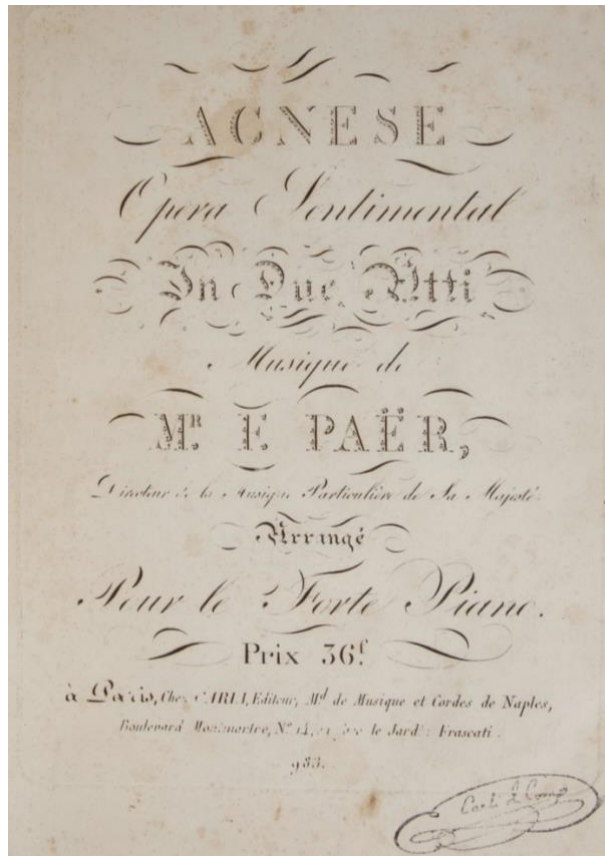 AGNESE
Opera Sentimental
In Due Atti
Musique de
MR F. PAËR,
Directeur de la Musique Particulière de Sa Majesté.
Arrangé
Pour le Forte Piano.
Prix 36f.
à Paris, Chez CARLI, Editeur, Md de Musique et Cordes de Naples,
Boulevard Montmartre, No 14, le Jard: Frascati.
983.
Carli & Comp